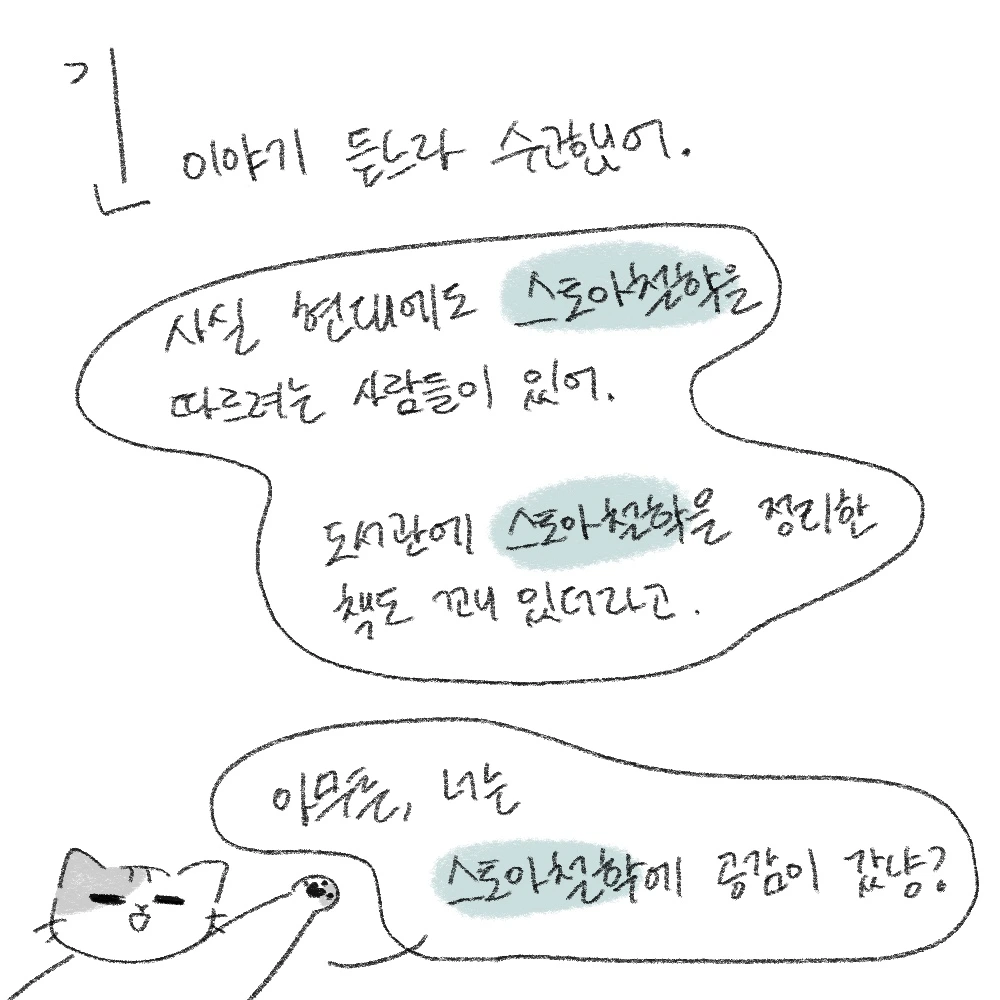 긴 이야기 듣느라 수고했어.
사실 현대에도 스토아철학을
따르려는 사람들이 있어.
도서관에 스토아철학을 정리한
책도 꽤 있더라고.
아무튼, 너는
스토아철학에 공감이 갔냥?